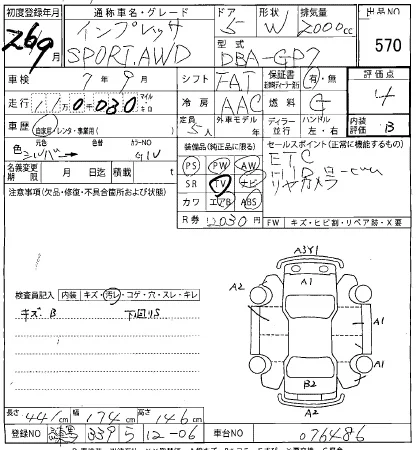 初度登録年月 通称車名・グレード ドア 形状 排気量 出品NO
26/9月 インプレッサ 5 W 2000cc 570
SPORT.AWD 型式 DBA-GP7
車検 7年9月 シフト FAT 保証書 有・無 評価点 4
走行 11万0030 マイル キロ 冷房 AAC 燃料 G
車歴 自家用・レンタ・事業用( ) 定員 5人 外車モデル 年 ディーラー 並行 ハンドル 左・右 内装評価 B
色 シルバー 色替 カラーNO G1U 装備品(純正品に限る) セールスポイント(正常に機能するもの)
名義変更期限 月 日迄 積載 t PS PW AW ETC
注意事項(欠品・修復・不具合箇所および状態) SR TV ナビ HID
カワ エアB ABS リヤカメラ
R券 12030円 FW キズ・ヒビ割・リペア跡・X要
A3Y1
A2 A1
検査員記入 内装 キズ・汚レ・コゲ・穴・スレ・キレ
キズ B 下回りS A1
A1
A2 B2
長さ 441cm 幅 174cm 高さ 146cm
登録NO 339 12-06 車台NO 076486